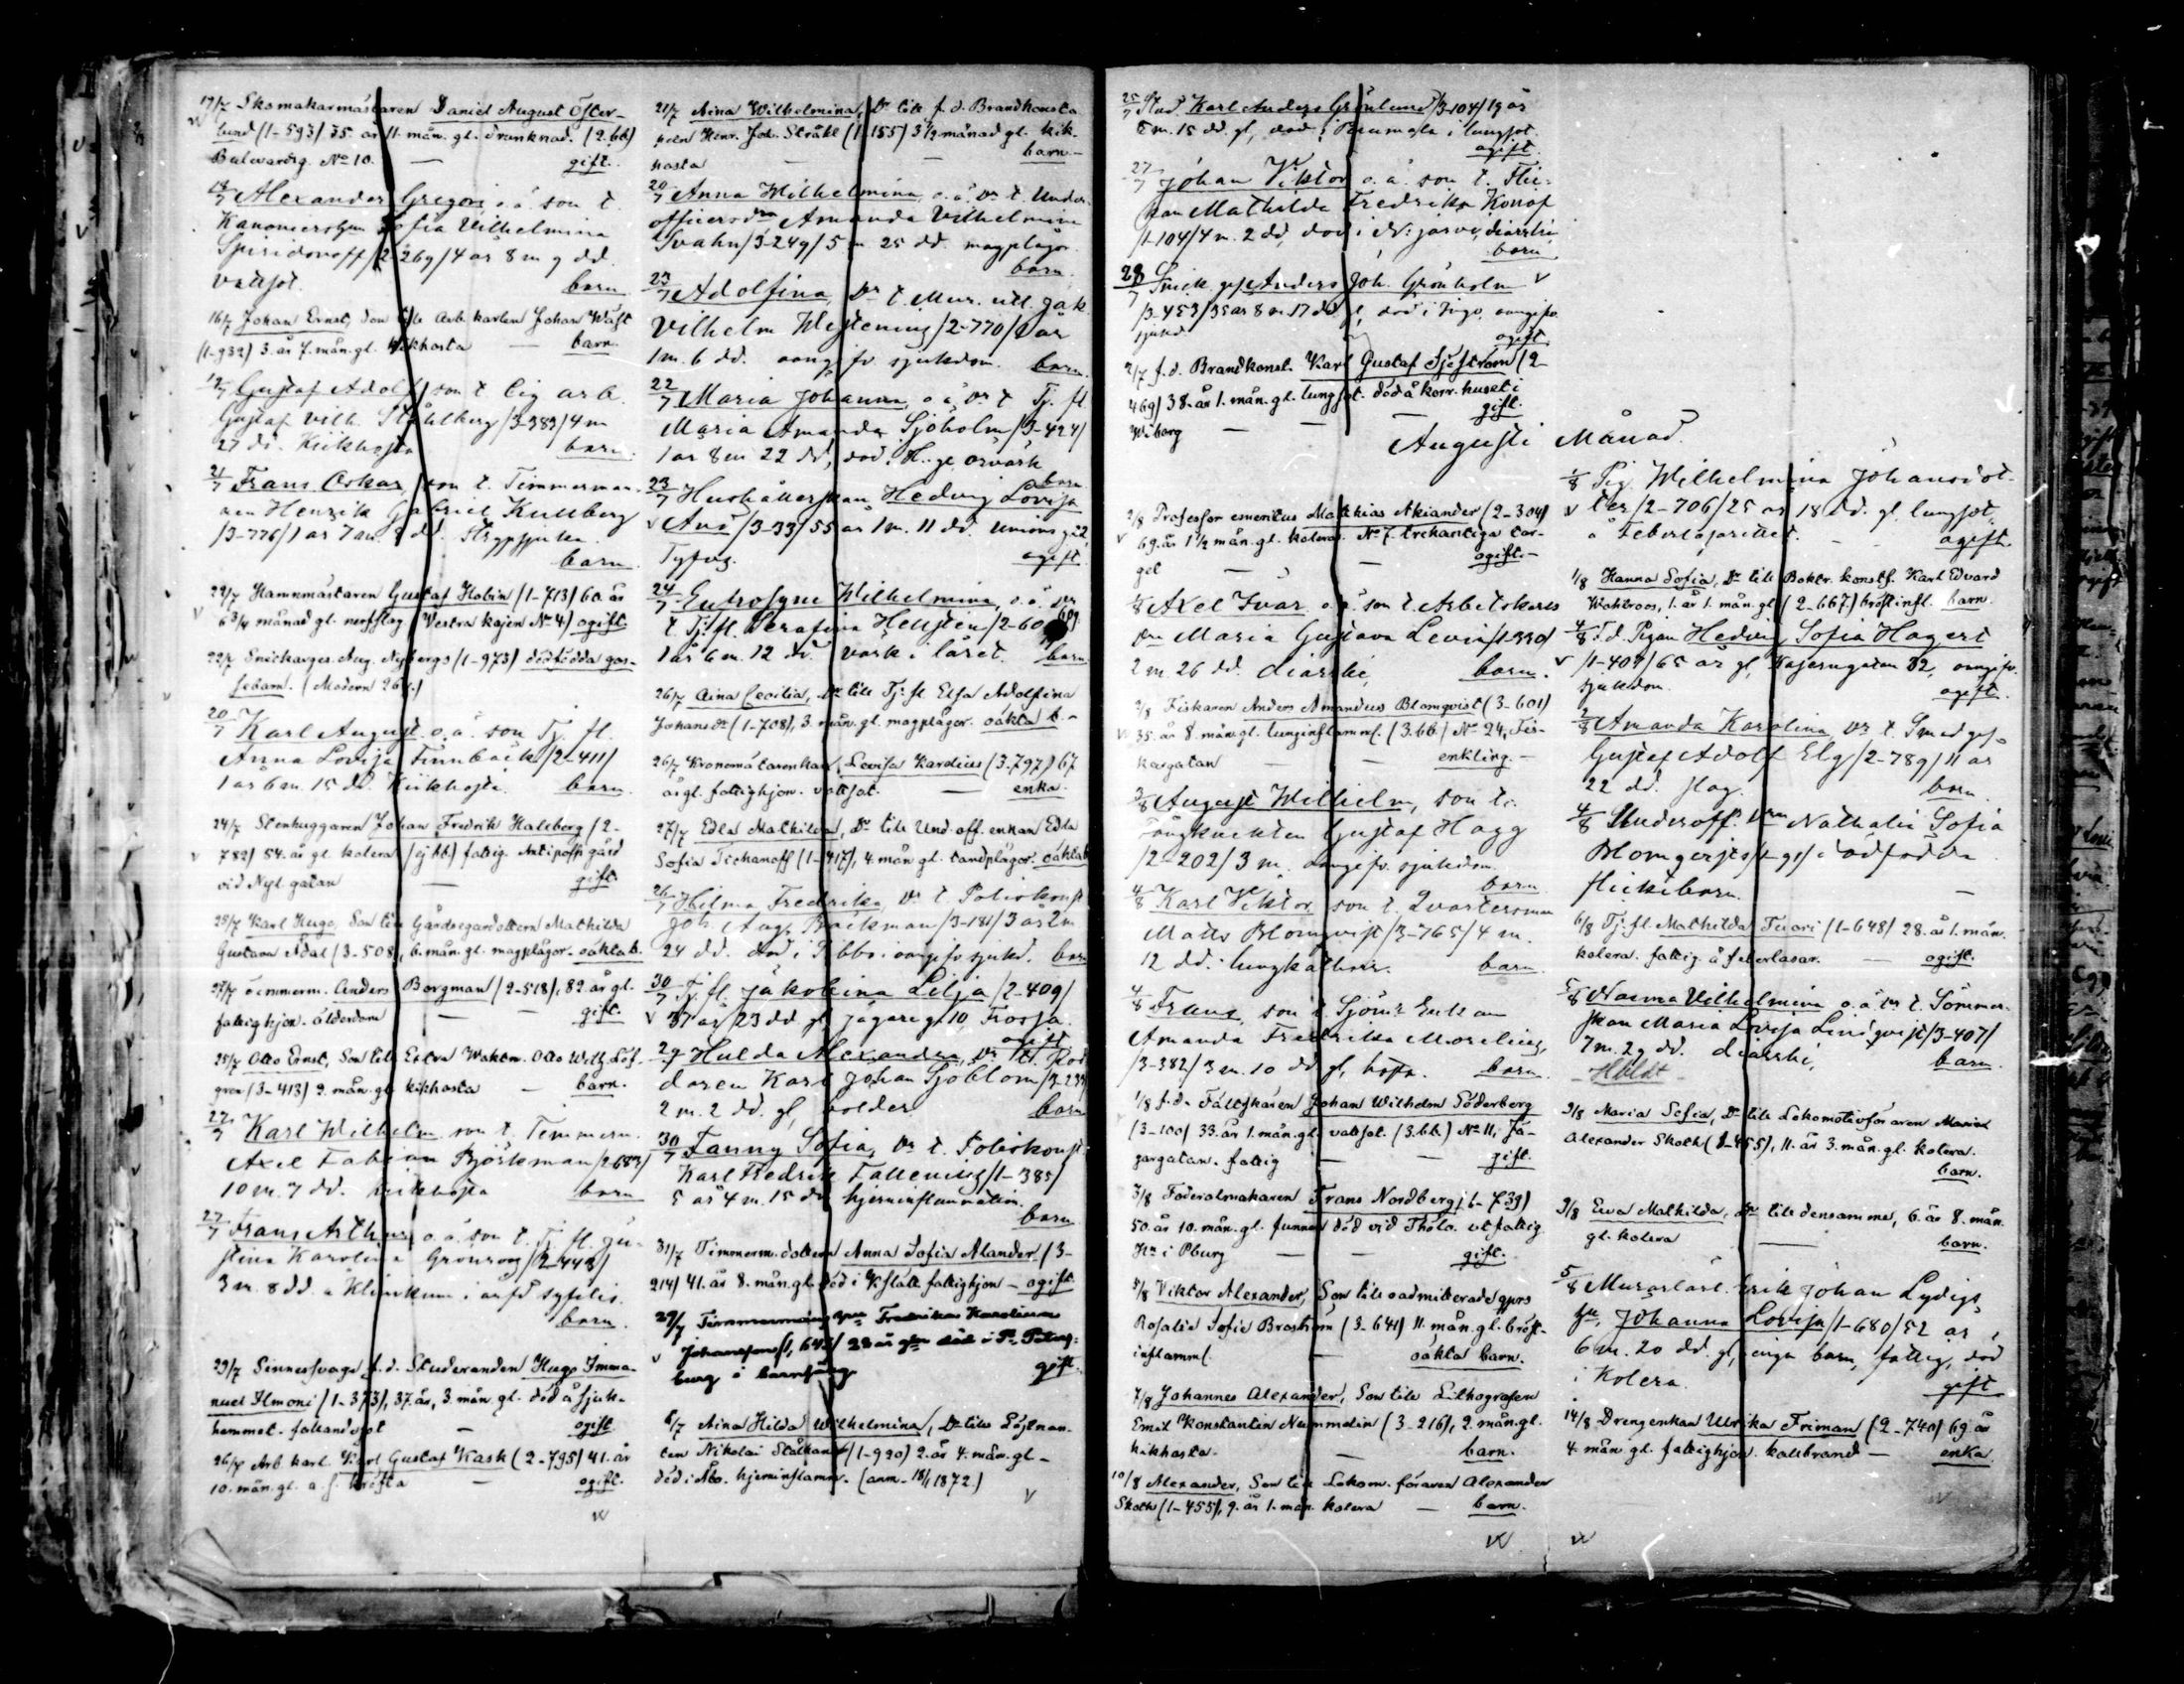 17/7 Skomakarmästaren Daniel August Öster-
lund (1-593) 35 år 11. mån. gl. drunknad. (2. bb)
Bulevardsg. No 10. — gift.
Alexander Gregori o.ä. son t.
Sofia Vilhelmina
Spiridonoff /2-269/ 4 år 8 m 9 dd.
vattsot. barn
16/7 Johan Ernst, Son till Arb. karlen Johan Wäst
(1-932) 3. år 7. mån. gl. kikhosta — barn.
Gustaf Adolf son t.
Gustaf Vilh. Ståhlberg /3-383/ 4 m
27 dd. Kikhosta barn.
21/7 Frans Oskar, son t. Timmerman-
nen Henrik Gabriel Kullberg
/3-776/ 1 år 7 m 8 dd. Strypsjuka.
barn
22/7 Hamnmästaren Gustaf Hobin (1-713) 60 år
v 6 3/4 månad gl. nerfslag (Vestra kajen No 4) ogift
22/7 Snickarges. Aug. Nybergs (1-973) dödfödda gos-
sebarn. (Modern 26 )
20/7 Karl August o.ä. son Tj. fl.
Anna Lovisa Finnbäck /2-411/
1 år 6 m. 15 dd. Kikhosta. barn.
24/7 Stenhuggaren Johan Fredrik Hallberg (2-
v 782) 54. år gl. kolera (ej bb) fattig. Antipoffs gård
vid Nyl. gatan — gift.
25/7 Karl Hugo, Son till Gårdsegardottern Mathilda
Gustava Ådal (3-508), 6. mån. gl. magplågor. oäkta b.
27/7 Timmerm. Anders Borgman (2-518), 82. år gl.
fattighjon. ålderdom — — gift.
25/7 Otto Ernst, Son till Extra Waktm. Otto Wilh. Löf-
gren (3-413) 9. mån. gl. kikhosta — barn.
27/7 Karl Wilhelm son t. Timmerm.
Axel Fabian Björkman /2-683/
10 m. 7 dd. kikhosta barn
27/7 Frans Arthur o.ä. son t. Tj. fl. Ju-
stina Karolina Grönroos /2-448/
3 m. 8 dd. a Klinikum i ärfd syfilis.
barn.
29/7 Sinnessvage f. d. Studeranden Hugo Imma-
nuel Ilmoni (1-373), 37. år, 3. mån. gl. död å sjuk-
hemmet. fallandesot — ogift
26/7 Arb. karl. Karl Gustaf Kask (2-795) 41. år
10. mån. gl. a. f. kräfta — ogift.
21/7 Aina Wilhelmina, Dr till f. d. Brandkonsta-
peln Henr. Joh. Ståhl (1-155) 3 1/2 månad gl. kik-
hosta — — barn —
20/7 Anna Wilhelmina, o.ä. Dr t. Under-
officersdrn Amanda Vilhelmina
Svahn /3-249/ 5 m. 25 dd. magplågor.
barn.
Adolfina, Dr t. Mur. Jak.
Vilhelm /2-770/ år
1 m. 6 dd. oangifv. sjukdom. barn.
22/7 Maria Johanna, o ä Dr t Tj. fl
Maria Amanda Sjöholm /3-424/
1 år 8 m 22 dd, död i
barn
23/7 Hushållerskan Hedvig Lovisa
v /3-33/ 55 år 1 m. 11 dd. Unionsg. 22,
Tyfus. ogift
24/7 Eufrosyne Wilhelmina, o.ä. Dr
t. Tj. fl. Serafina Hellsten /2-60
1 år 6 m. 12 dd. värk i låret. barn.
26/7 Aina Cecilia, Dr till Tj. fl. Elsa Adolfina
Johansdr (1-708), 3. mån. gl. magplågor. oäkta b. —
26/7 Kronomätarenkan Lovisa Kardius (3-797) 67
år gl. fattighjon. vattsot. — enka.
27/7 Edla Mathilda, Dr till Und. off. enkan Edla
Sofia Tichanoff (1-417), 4. mån gl. tandplågor. oäkta b
26/7 Hilma Fredrika, Dr t. Poliskonst
Joh. Aug. Bäckman /3-181/ 3 år 2 m
24 dd. död i Sibbo i oangifv. sjukd. barn
30/7 Tj. fl. Jakobina Lilja /2-409/
v 37 år 23 dd gl. Jägareg. 10, Frossa.
ogift
29/7 Hulda Alexandra, Dr t.
daren Karl Johan Sjöblom /3-239/
2 m. 2 dd. gl, bolder barn
30/7 Fanny Sofia, Dr t. Poliskonst.
Karl Fredrik Fallenius /1-385/
5 år 4 m. 15 dd hjerninflammation.
barn
31/7 Timmerm. dottern Anna Sofia Alander (3-
214) 41. år 8. mån. gl. död i Kslätt fattighjon — ogift
29/7 Timmermans Fredrika Karolina
v 645/ 28 år död i St. Peters-
burg i barnsäng gift.
6/7 Aina Hilda Wilhelmina, Dr till Löjtnan-
ten Nikolai Stålhane (1-920) 2. år 4. mån. gl —
död i Åbo. hjerninflamm. (anm. 18/1 1872.)
v
25/7 Stud. Karl Anders Grönlund /3-104/ 19 år
m. 15 dd. gl, död i i lungsot.
ogift.
27/7 Johan Viktor o. ä. son t.
kan Mathilda Fredrika
/1-104/ 4 m. 2 dd, död i N:järvi, diarrhé
barn
28/7 Snick. ges Anders Joh. Grönholm v
/3-453/ 35 år 8 m. 17 dd gl, död i Ingo, oangifv.
sjukd. ogift
2/7 f. d. Brandkonst. Karl Gustaf Sjöström (2-
469) 38. år 1. mån. gl. lungsot. död å korr. huset i
Wiborg — — gift.
Augusti Månad.
2/8 Professor emeritus Matthias Akiander (2-304)
v 69. år 1 1/2 mån. gl. kolera. No 7. trekantiga tor-
get — — ogift. —
Axel Ivar o.ä. son t. Arbetskarls
drn Maria Gustava Levin /1-330/
2 m. 26 dd. diarrhé, barn.
2/8 Fiskaren Anders Amandus Blomqvist (3-601)
v 35. år 8. mån gl. lunginflamml. (3. bb.) No 24, Fis-
kargatan — — enkling. —
August Wilhelm, son t.
Fångknekten Gustaf Hagg
/2-202/ 3 m. oangifv. sjukdom
barn
4/8 Karl Viktor son t. Qvartersman
Matts Blomqvist /3-765/ 4 m.
12 dd. lungkatharr. barn.
4/8 Frans, son t. Sjöm:s Enkan
Amanda Fredrika Morelius,
/3-382/ 3 m. 10 dd gl, hosta. barn.
1/8 f. d. Fältskären Johan Wilhelm Söderberg
(3-100) 33. år 1. mån. gl. vattsot. (3. bb.) No 11, Jä-
garegatan. fattig — — gift.
3/8 Foderalmakaren Frans Nordberg (1-739)
50. år 10. mån. gl. funnen död vid Thölö. utfattig
Hn i Pburg — — gift.
5/8 Viktor Alexander, Son till oadmitterade qprs
Rosalie Sofie Broström (3-641) 11. mån. gl. bröst-
inflamml. — oäkta barn.
7/8 Johannes Alexander, Son till Lithografen
Emil Konstantin Nummelin (3-216), 2. mån. gl.
kikhosta. — barn.
10/8 Alexander, Son till Lokom. föraren Alexander
Skoth (1-455), 9. år 1. mån. kolera — barn.
1/8 Pig. Wilhelmina Johansdot-
v ter /2-706/ 25 år 18 dd. gl, lungsot,
å Feberlasarettet. — ogift.
1/8 Hanna Sofia, Dr till Boktr. konstf. Karl Edvard
Wahlroos, 1. år 1. mån. gl. (2-667.) bröstinfl. barn.
4/8 F. d. Pigan Hedvig Sofia Hagert
v /1-407/ 65 år gl, Kaserngatan 32, oangifv.
sjukdom. ogift.
Amanda Karolina, Dr t. Smedges
Gustaf Adolf Elg /2-789/ 11 år
22 dd. slag. barn
4/8 Underoff. Nathalia Sofia
dödfödda
flickebarn. —
6/8 Tj. fl. Mathilda Tuori (1-648) 28. år 1. mån.
kolera. fattig å feberlasar. — ogift.
5/8 Naema Vilhelmina o.ä. Dr t. Sömmer-
skan Maria Lovisa Lindqvist /3-407/
7 m. 29 dd. diarrhé, barn.
9/8 Maria Sofia, Dr till Lokomotivföraren
Alexander Skoth (1-455), 11. år 3. mån. gl. kolera.
barn.
9/8 Ewa Mathilda, Dr till densamme, 6. år 8. mån.
gl. kolera — barn.
5/8 Murarlärl. Erik Johan
Johanna Lovisa /1-680/ 52 år,
6 m. 20 dd. gl, inga barn, fattig, död
i Kolera. gift
14/8 Drengenkan Ulrika Friman (2-740) 69 år
4. mån. gl. fattighjon. kallbrand — enka